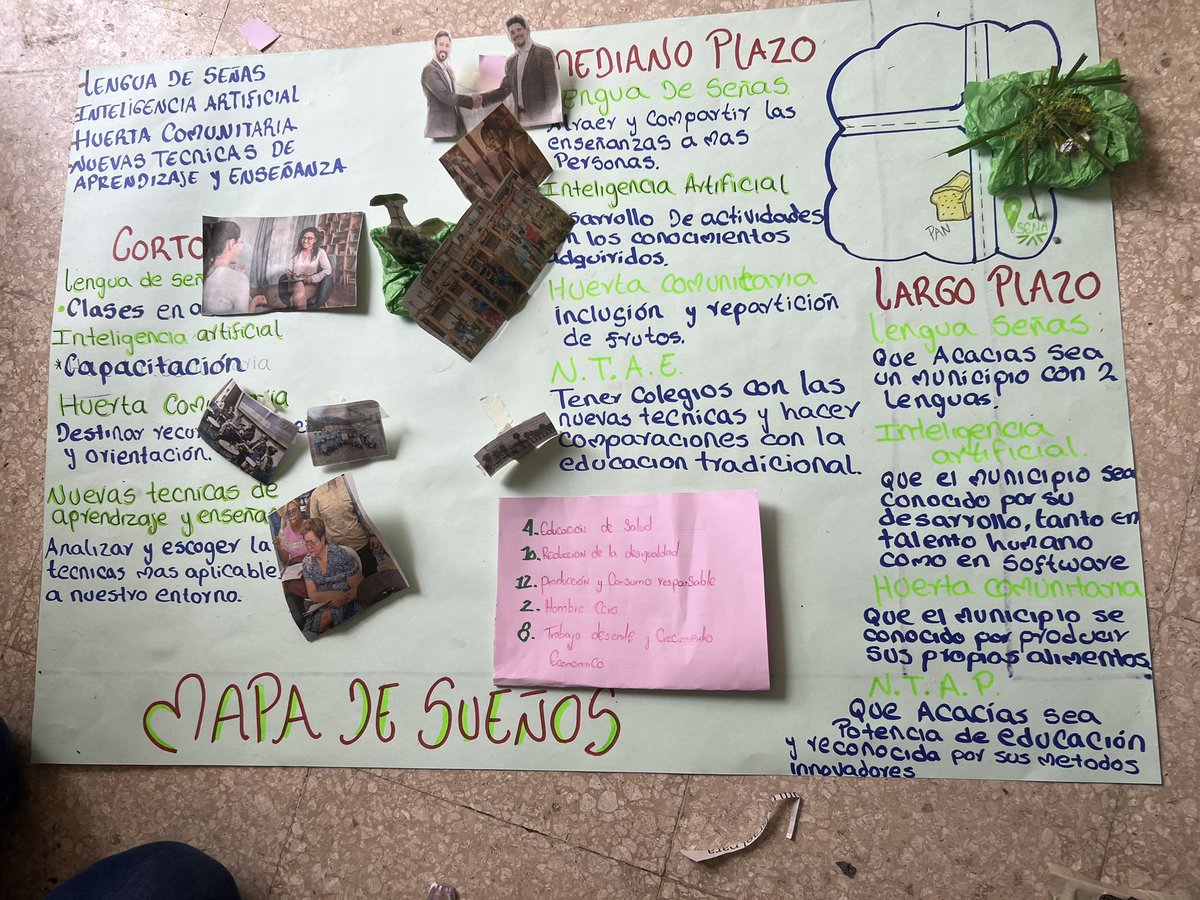 LENGUA DE SEÑAS
INTELIGENCIA ARTIFICIAL
HUERTA COMUNITARIA
NUEVAS TECNICAS DE
APRENDIZAJE Y ENSEÑANZA
CORTO
lengua de señ
• Clases en
Inteligencia artificial
*Capacitación
Huerta Comu ria
Destinar recur
y orientación.
Nuevas tecnicas de
aprendizaje y enseñan
Analizar y escoger la
tecnicas mas aplicable
a nuestro entorno.
MEDIANO PLAZO
Lengua de señas
Atraer y compartir las
enseñanzas a mas
Personas.
Inteligencia Artificial
sarrollo De actividades
n los conocimientos
adquiridos.
Huerta comunitaria
inclusión y repartición
de frutos.
N.T.A.E.
Tener colegios con las
nuevas tecnicas y hacer
comparaciones con la
educacion tradicional.
4. Educación de Salud
10. Reducción de la desigualdad
12. Producción y Consumo responsable
2. Hombre Cero
8. Trabajo desente y Crecimiento
Economico
PAN
SENA
LARGO PLAZO
Lengua Señas
Que Acacias sea
un municipio con 2
Lenguas.
Inteligencia
artificial.
Que el municipio sea
conocido por su
desarrollo, tanto en
talento humano
como en software
Huerta comunitaria
Que el municipio se
conocido por producir
sus propios alimentos
N.T.A.P.
Que Acacías sea
Potencia de educación
y reconocida por sus metodos
innovadores
MAPA DE SUEÑOS